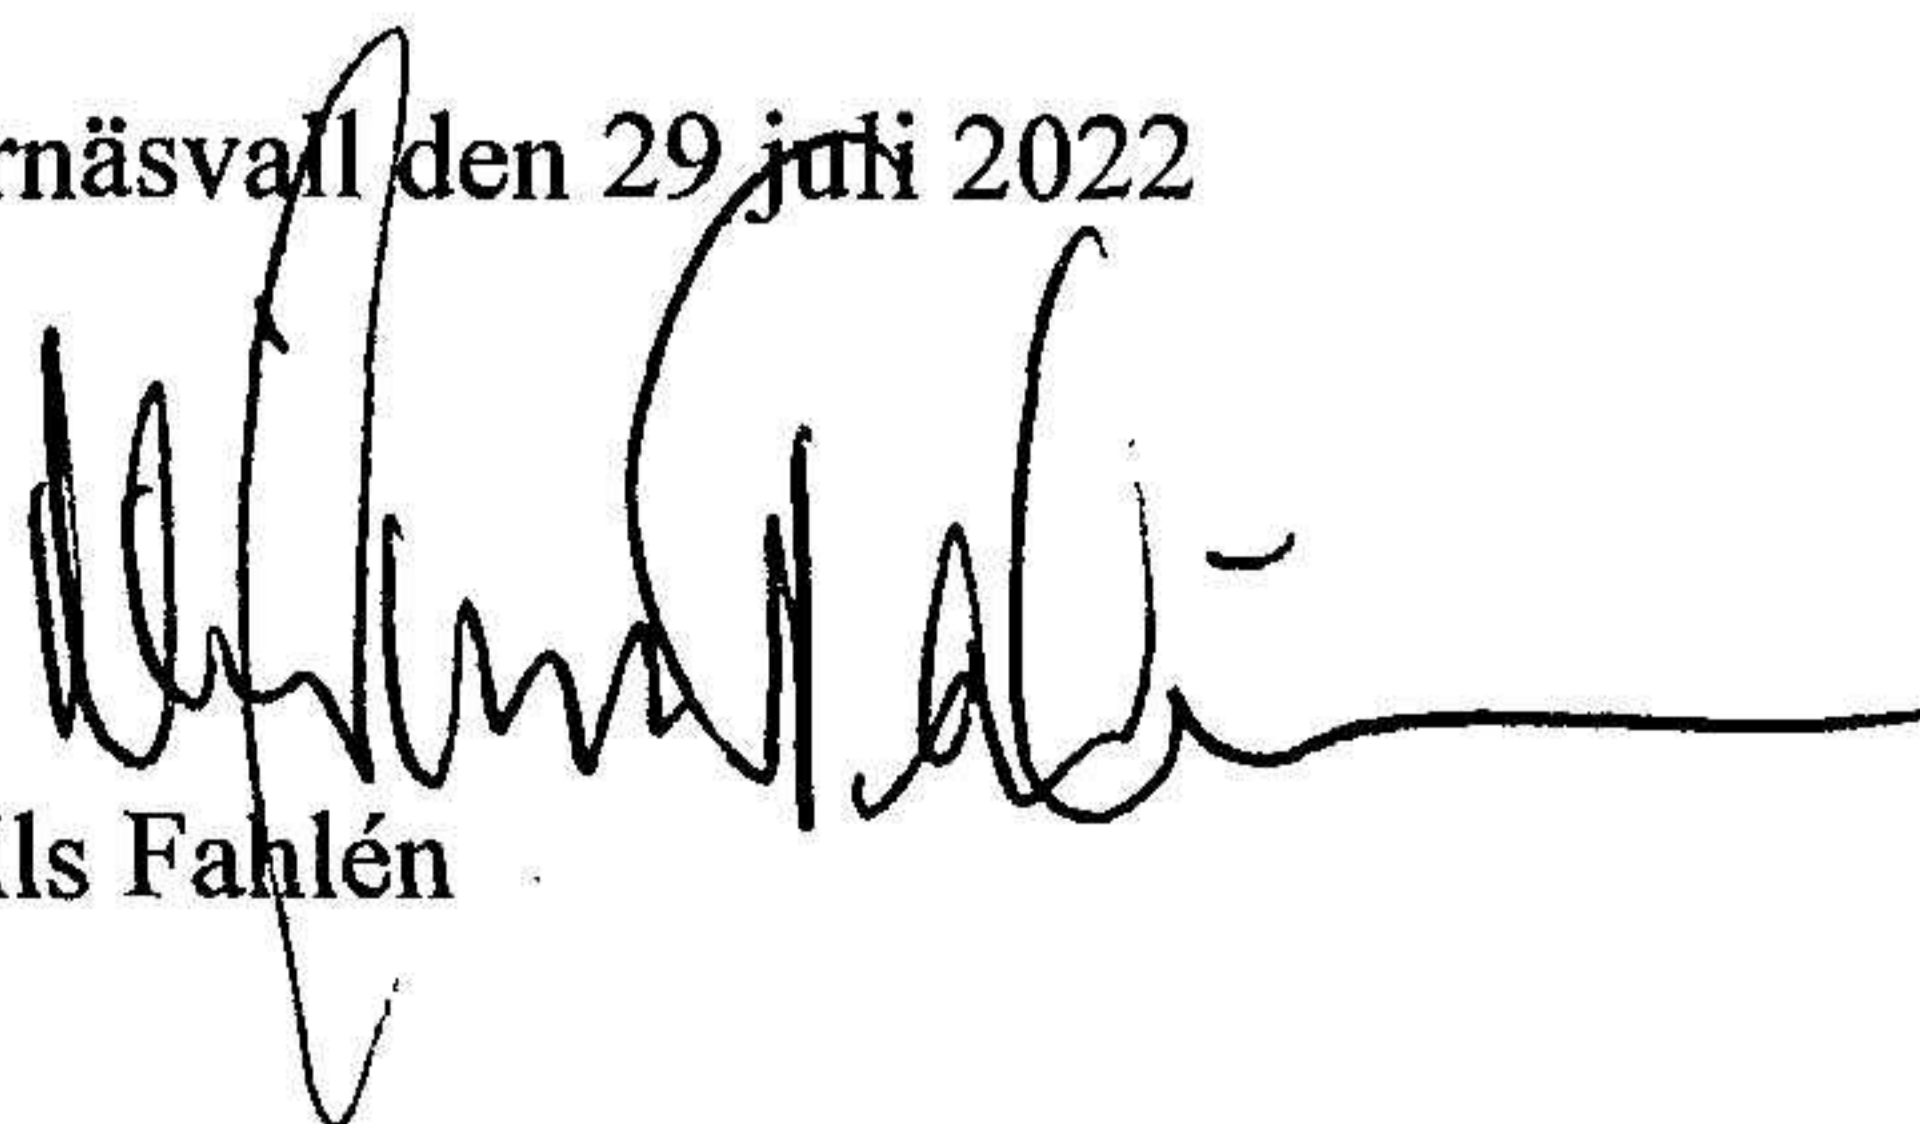 rnäsvall den 29 juli 2022
ils Fahlén